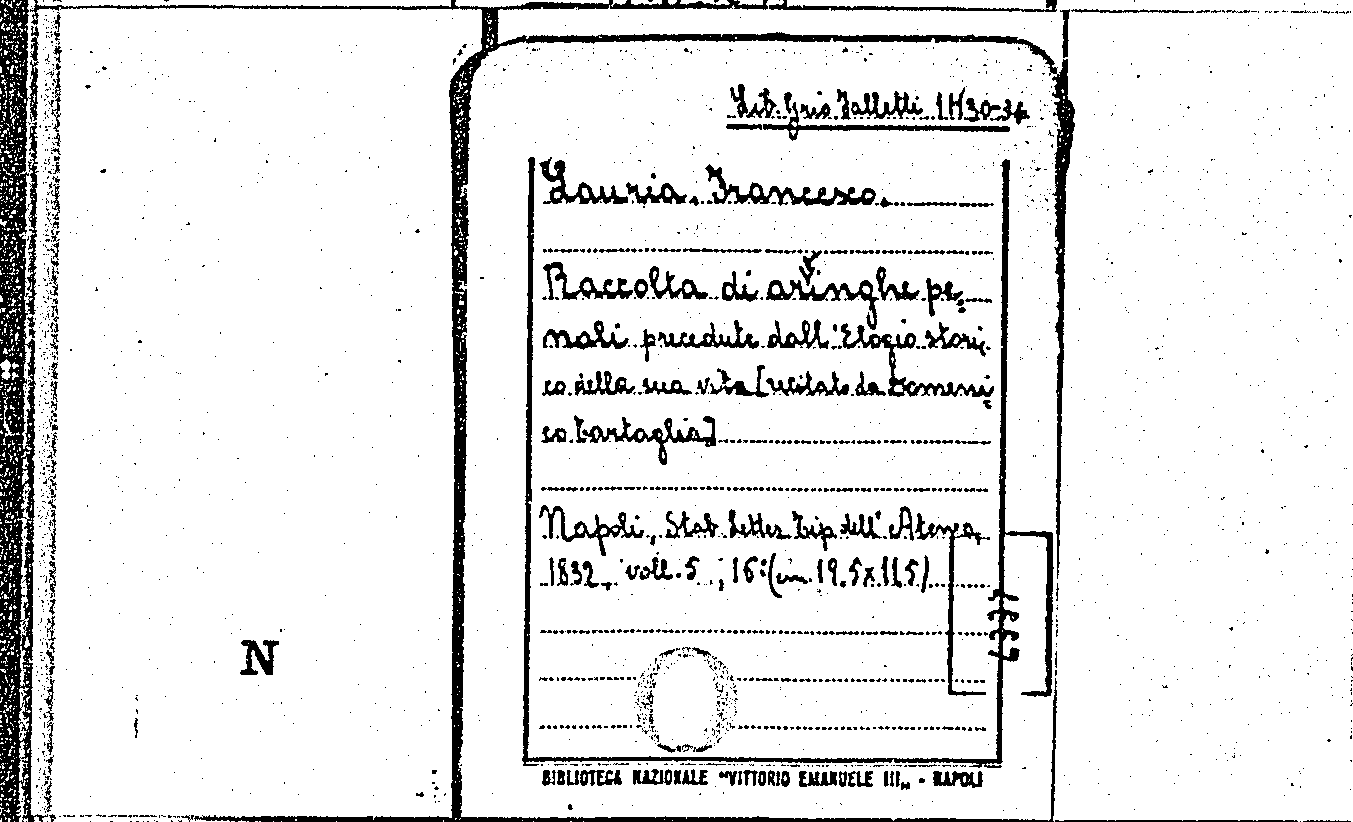 Lib. Gris Falletti 1 H 30-34
Lauria, Francesco.
Raccolta di aringhe pe-
nali precedute dall'Elogio stori-
co della sua vita [recitato da Domeni-
co Tartaglia]
Napoli, Stab. Letter. Tip. dell'Ateneo,
1832, voll. 5, 16° (cm. 19.5x11.5)
N
BIBLIOTECA NAZIONALE "VITTORIO EMANUELE III„ - NAPOLI